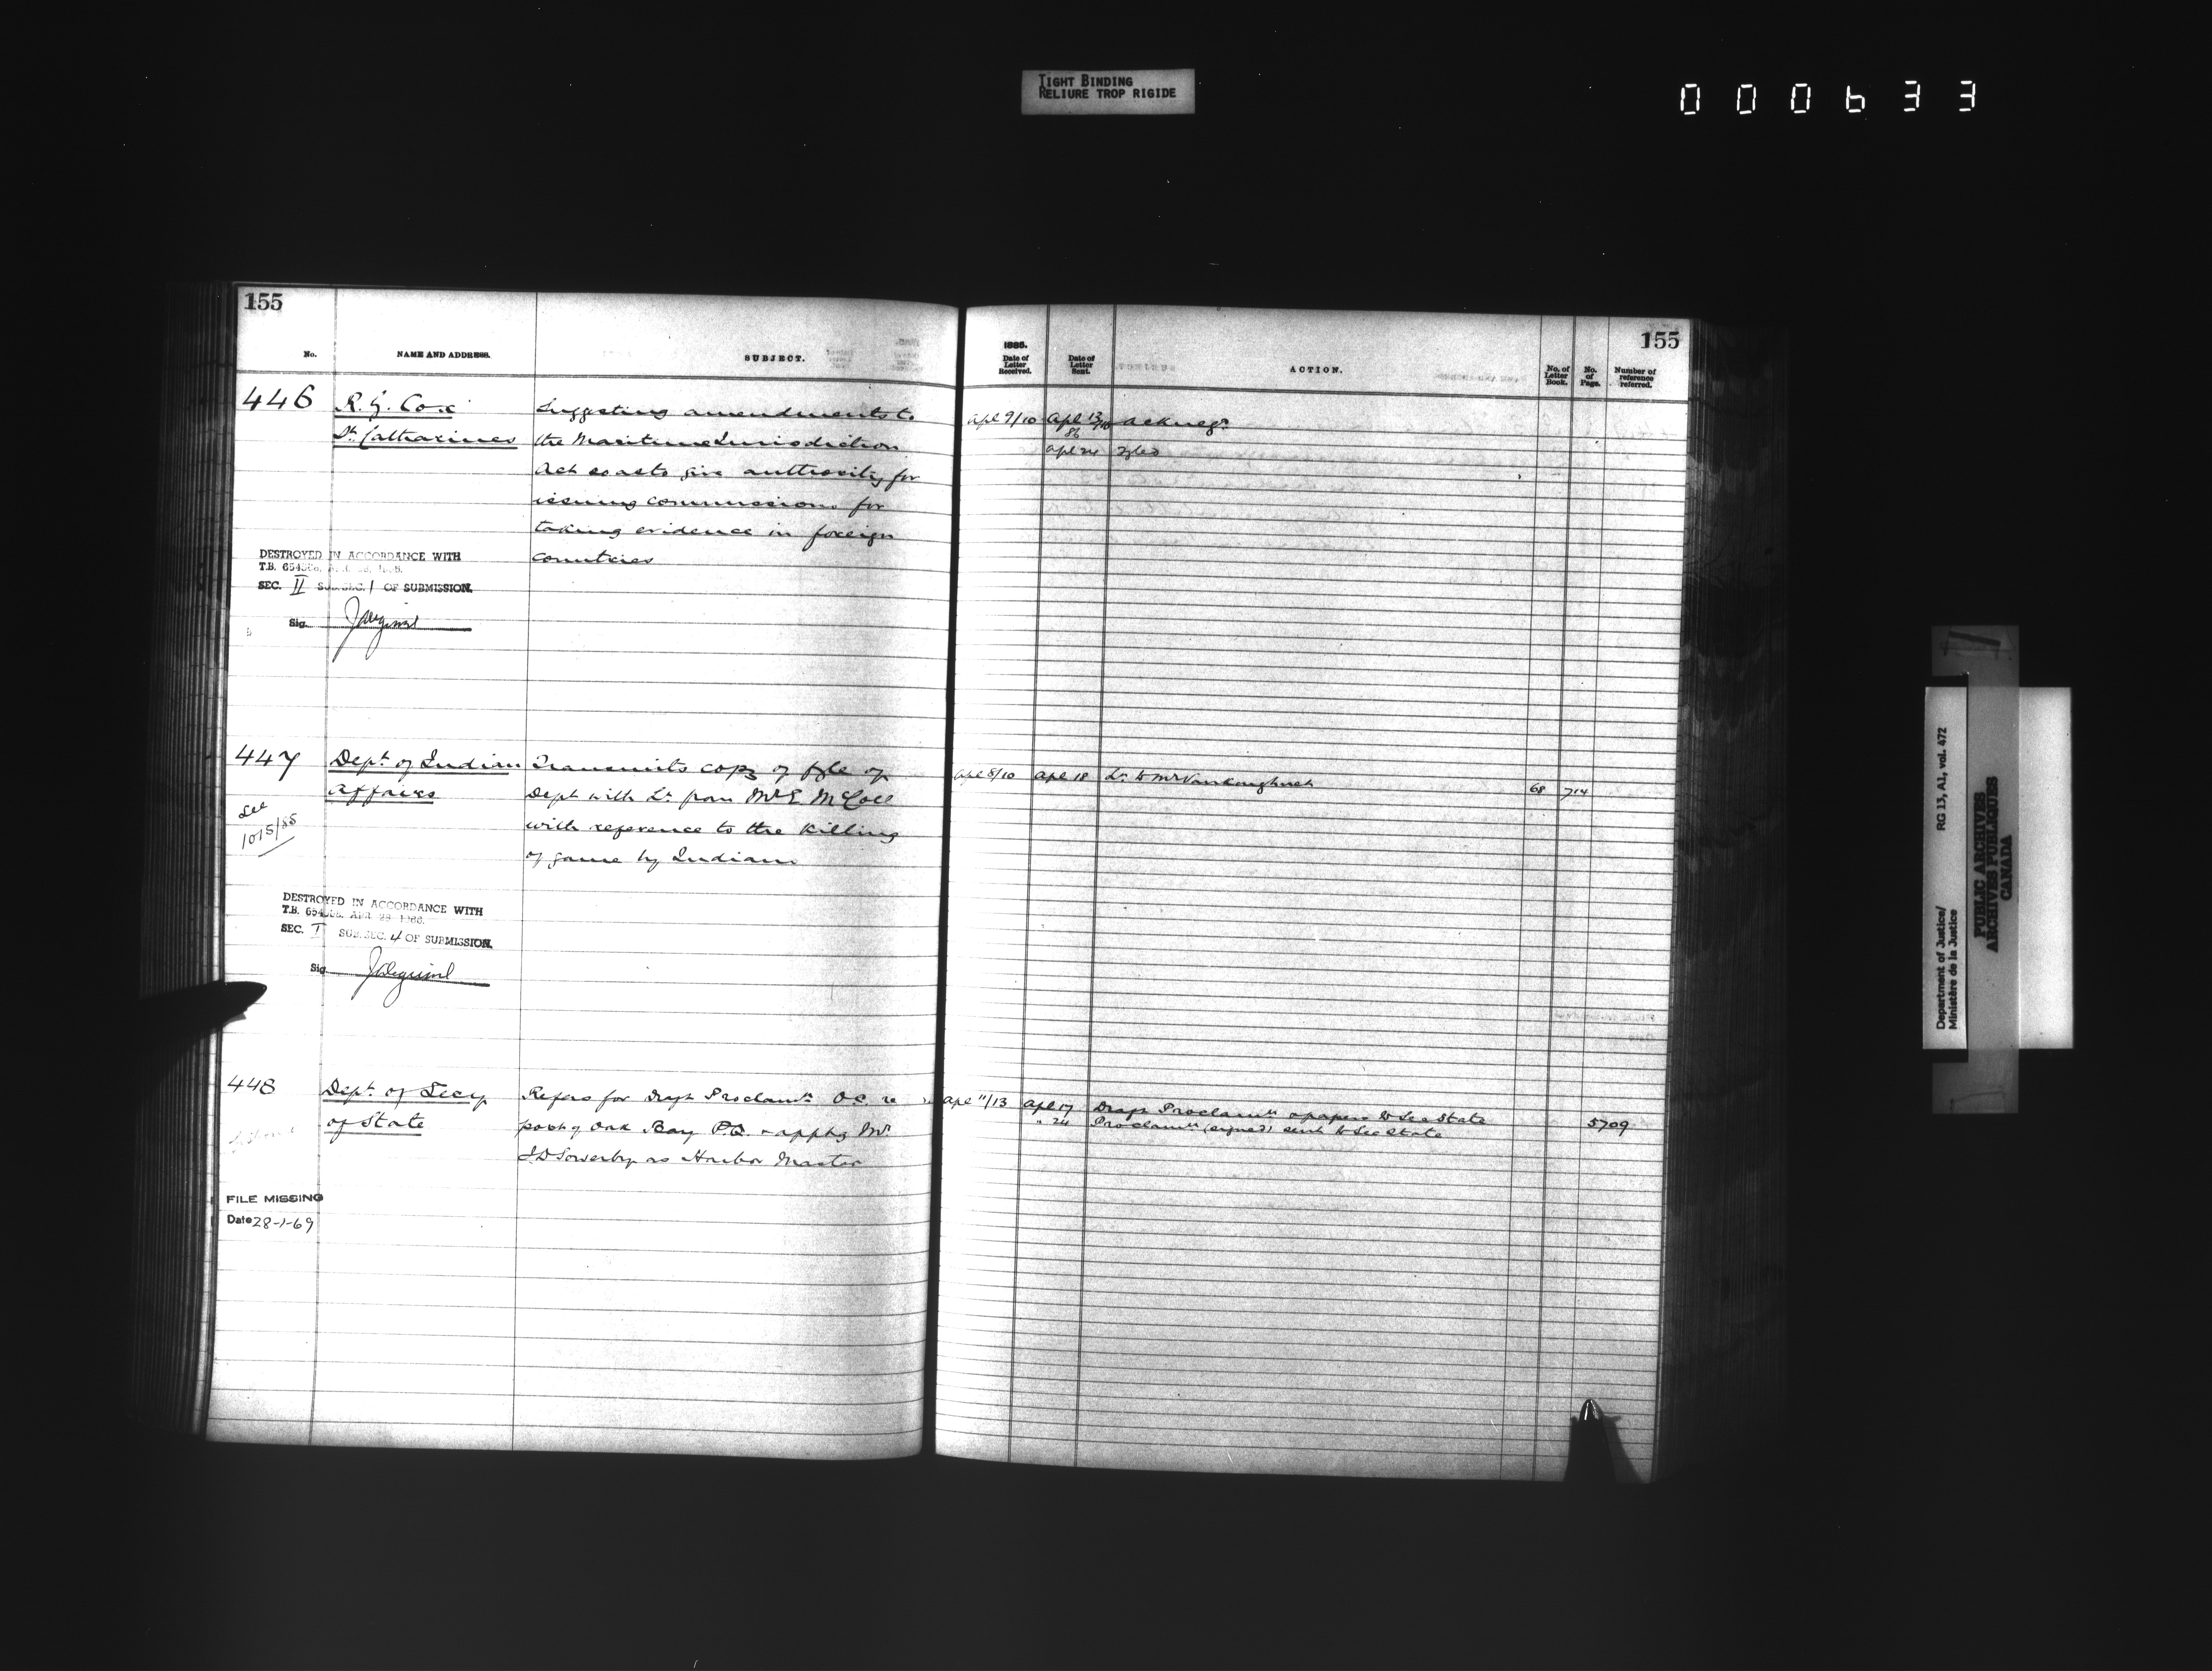 TIGHT BINDING
RELIURE TROP RIGIDE
000633
155
No.
NAME AND ADDRESS.
SUBJECT.
446
R. G. Cox
St. Catharines
Suggesting amendments to
the Maritime Jurisdiction
Act so as to give authority for
issuing commissions for
taking evidence in foreign
countries
DESTROYED IN ACCORDANCE WITH
T.B. 654
SEC. II SUB. SEC. 1 OF SUBMISSION.
Sig.
447
Dept. of Indian
Affairs
See
1015/85
Transmits copy of fyle of
Dept with Lr. from Mr E. McColl
with reference to the killing
of game by Indians
DESTROYED IN ACCORDANCE WITH
T.B. 654 APR. 28 1966.
SEC. I SUB. SEC. 4 OF SUBMISSION.
Sig.
448
Dept. of Secy
of State
Refers for Draft Proclamn. O.C. re
port of Oak Bay P.Q. & apptg Mr.
J. D Sowerby as Harbor Master
FILE MISSING
Date 28-1-69
155
1885.
Date of Letter Received.
Date of Letter Sent.
ACTION.
No. of Letter Book.
No. of Page.
Number of reference referred.
Apl 9/10 Apl 13 Ackneg.
86
Apl 24 Fyled
Apl 8/10 Apl 18 Lr. to Mr Vankoughnet 68 714
Apl 11/13 Apl 17 Draft Proclamn & papers to Sec State 5709
" 24 Proclamn (signed) sent to Sec State
Department of Justice/
Ministère de la Justice
RG 13, A1, vol. 472
PUBLIC ARCHIVES
ARCHIVES PUBLIQUES
CANADA